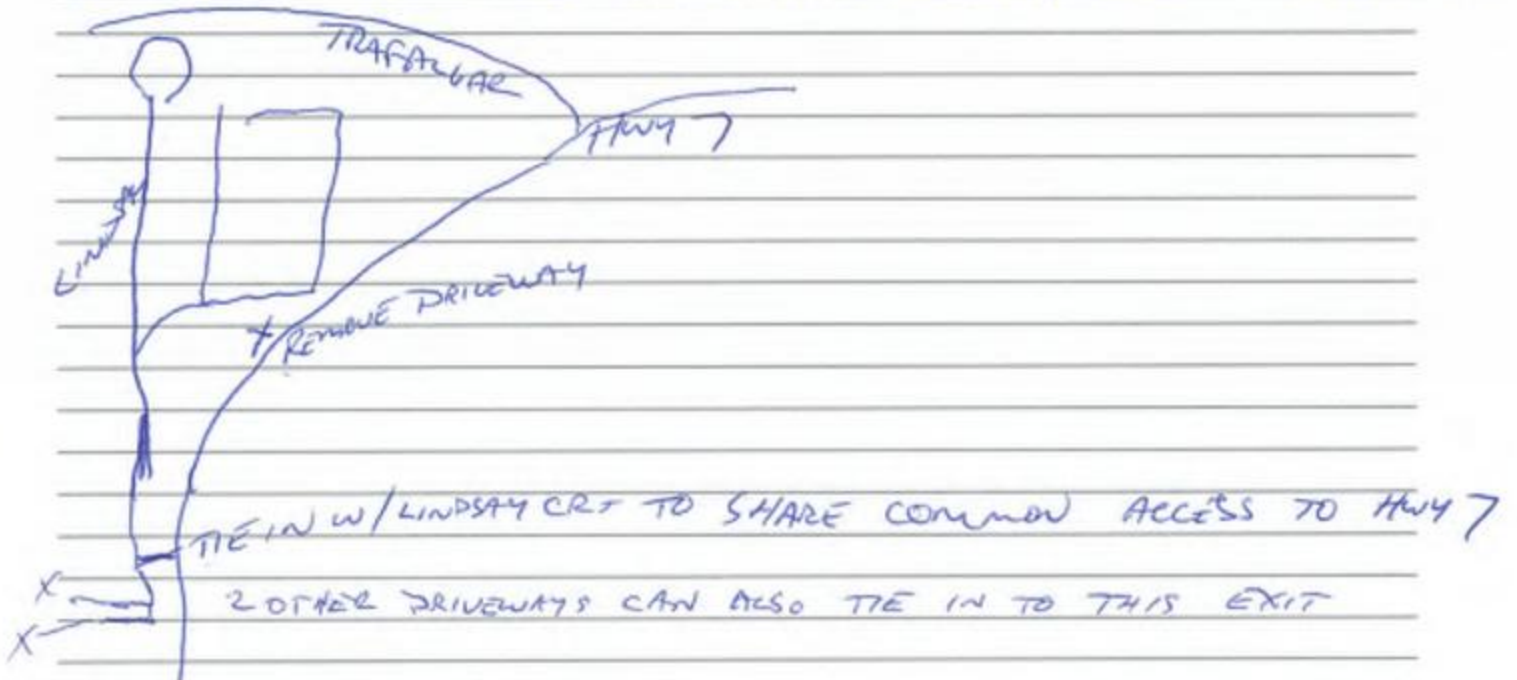 TRAFALGAR
HWY 7
LINDSAY
X REMOVE DRIVEWAY
TIE IN W/ LINDSAY CRT TO SHARE COMMON ACCESS TO HWY 7
X
2 OTHER DRIVEWAYS CAN ALSO TIE IN TO THIS EXIT
X